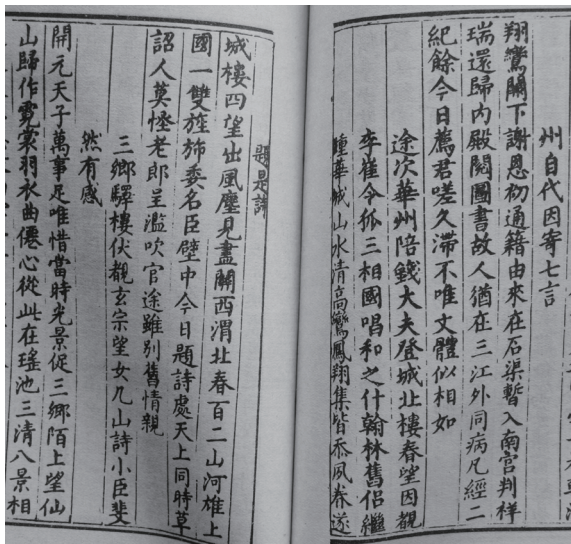 州自代因寄七言
翔鸞闕下謝恩初通籍由來在石渠暫入南宮判祥
瑞還歸內殿閱圖書故人猶在三江外同病凡經二
紀餘今日薦君嗟久滯不唯文體似相如
途次華州陪錢大夫登城北樓春望因覩
李崔令狐三相國唱和之什翰林舊侶繼
踵華城山水清高鸞鳳翔集皆忝夙眷遂
題是詩
城樓四望出風塵見盡關西渭北春百二山河雄上
國一雙旌旆委名臣壁中今日題詩處天上同時草
詔人莫怪老郎呈濫吹官途雖別舊情親
三鄉驛樓伏覩玄宗望女几山詩小臣斐
然有感
開元天子萬事足唯惜當時光景促三鄉陌上望仙
山歸作霓裳羽衣曲僊心從此在瑤池三清八景相